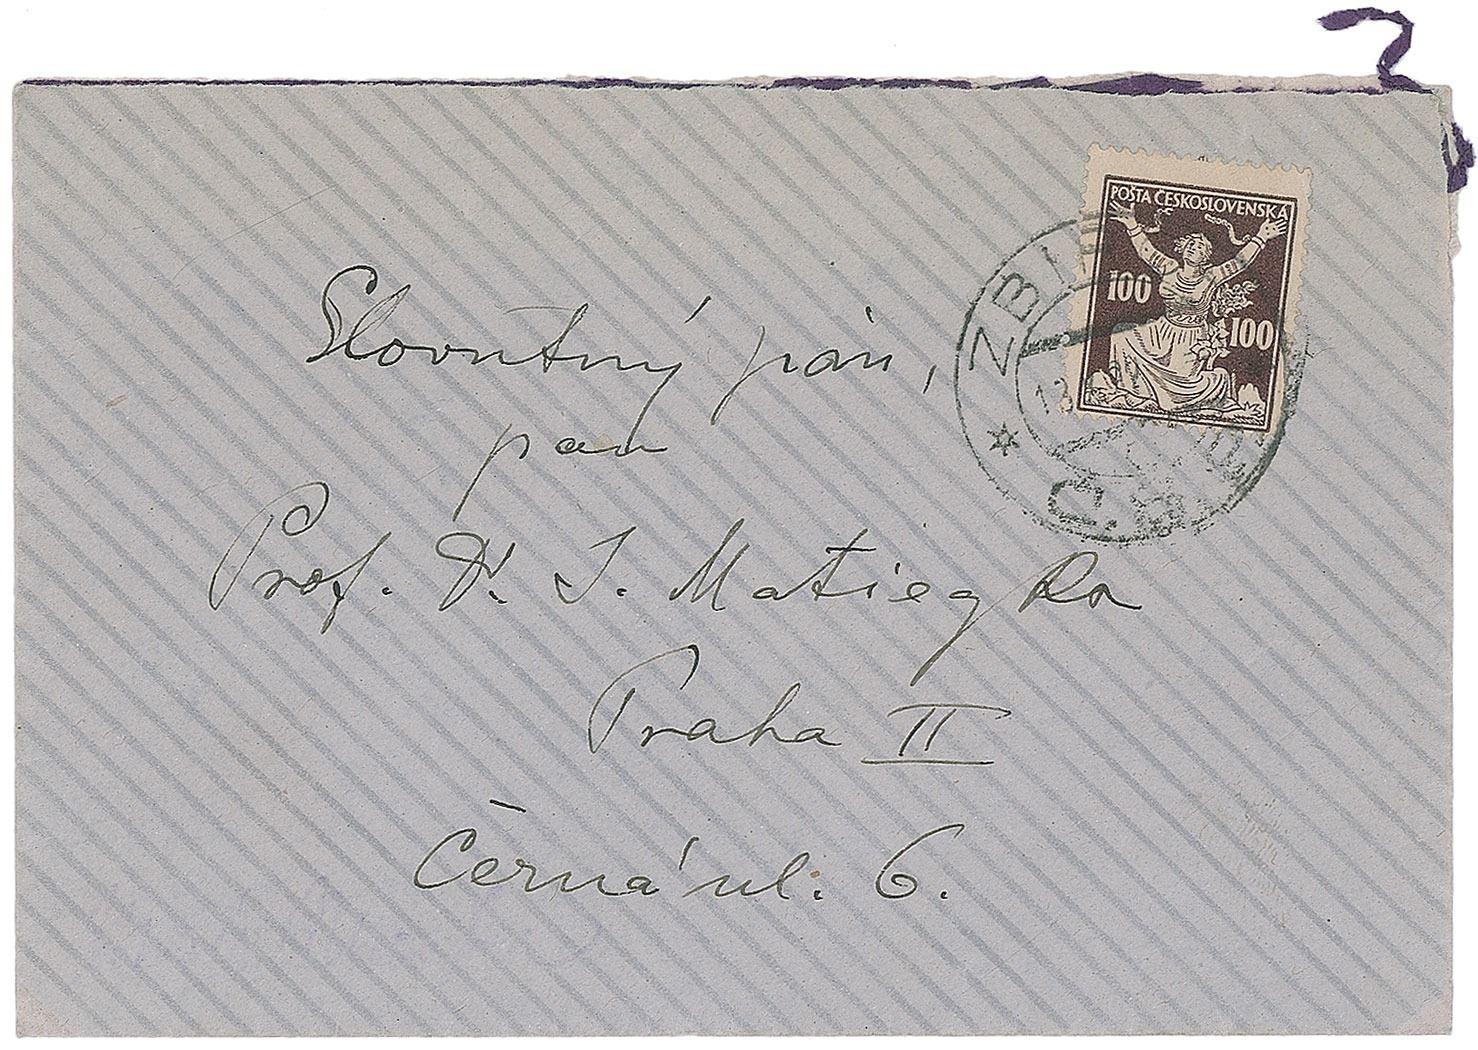 POŠTA ČESKOSLOVENSKÁ
100
100
Slovutný pán,
pan
Prof. Dr. J. Matiegka
Praha II
Černá ul. 6.